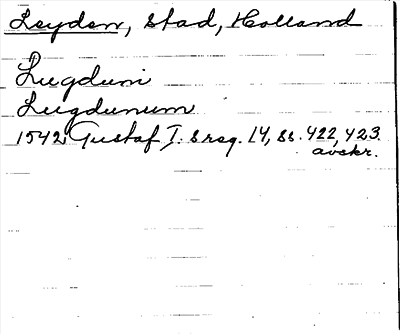 Leyden, Stad, Holland
Lugduni
Lugdunum
1542 Gustaf I. s reg. 14, ss. 422, 423
avskr.